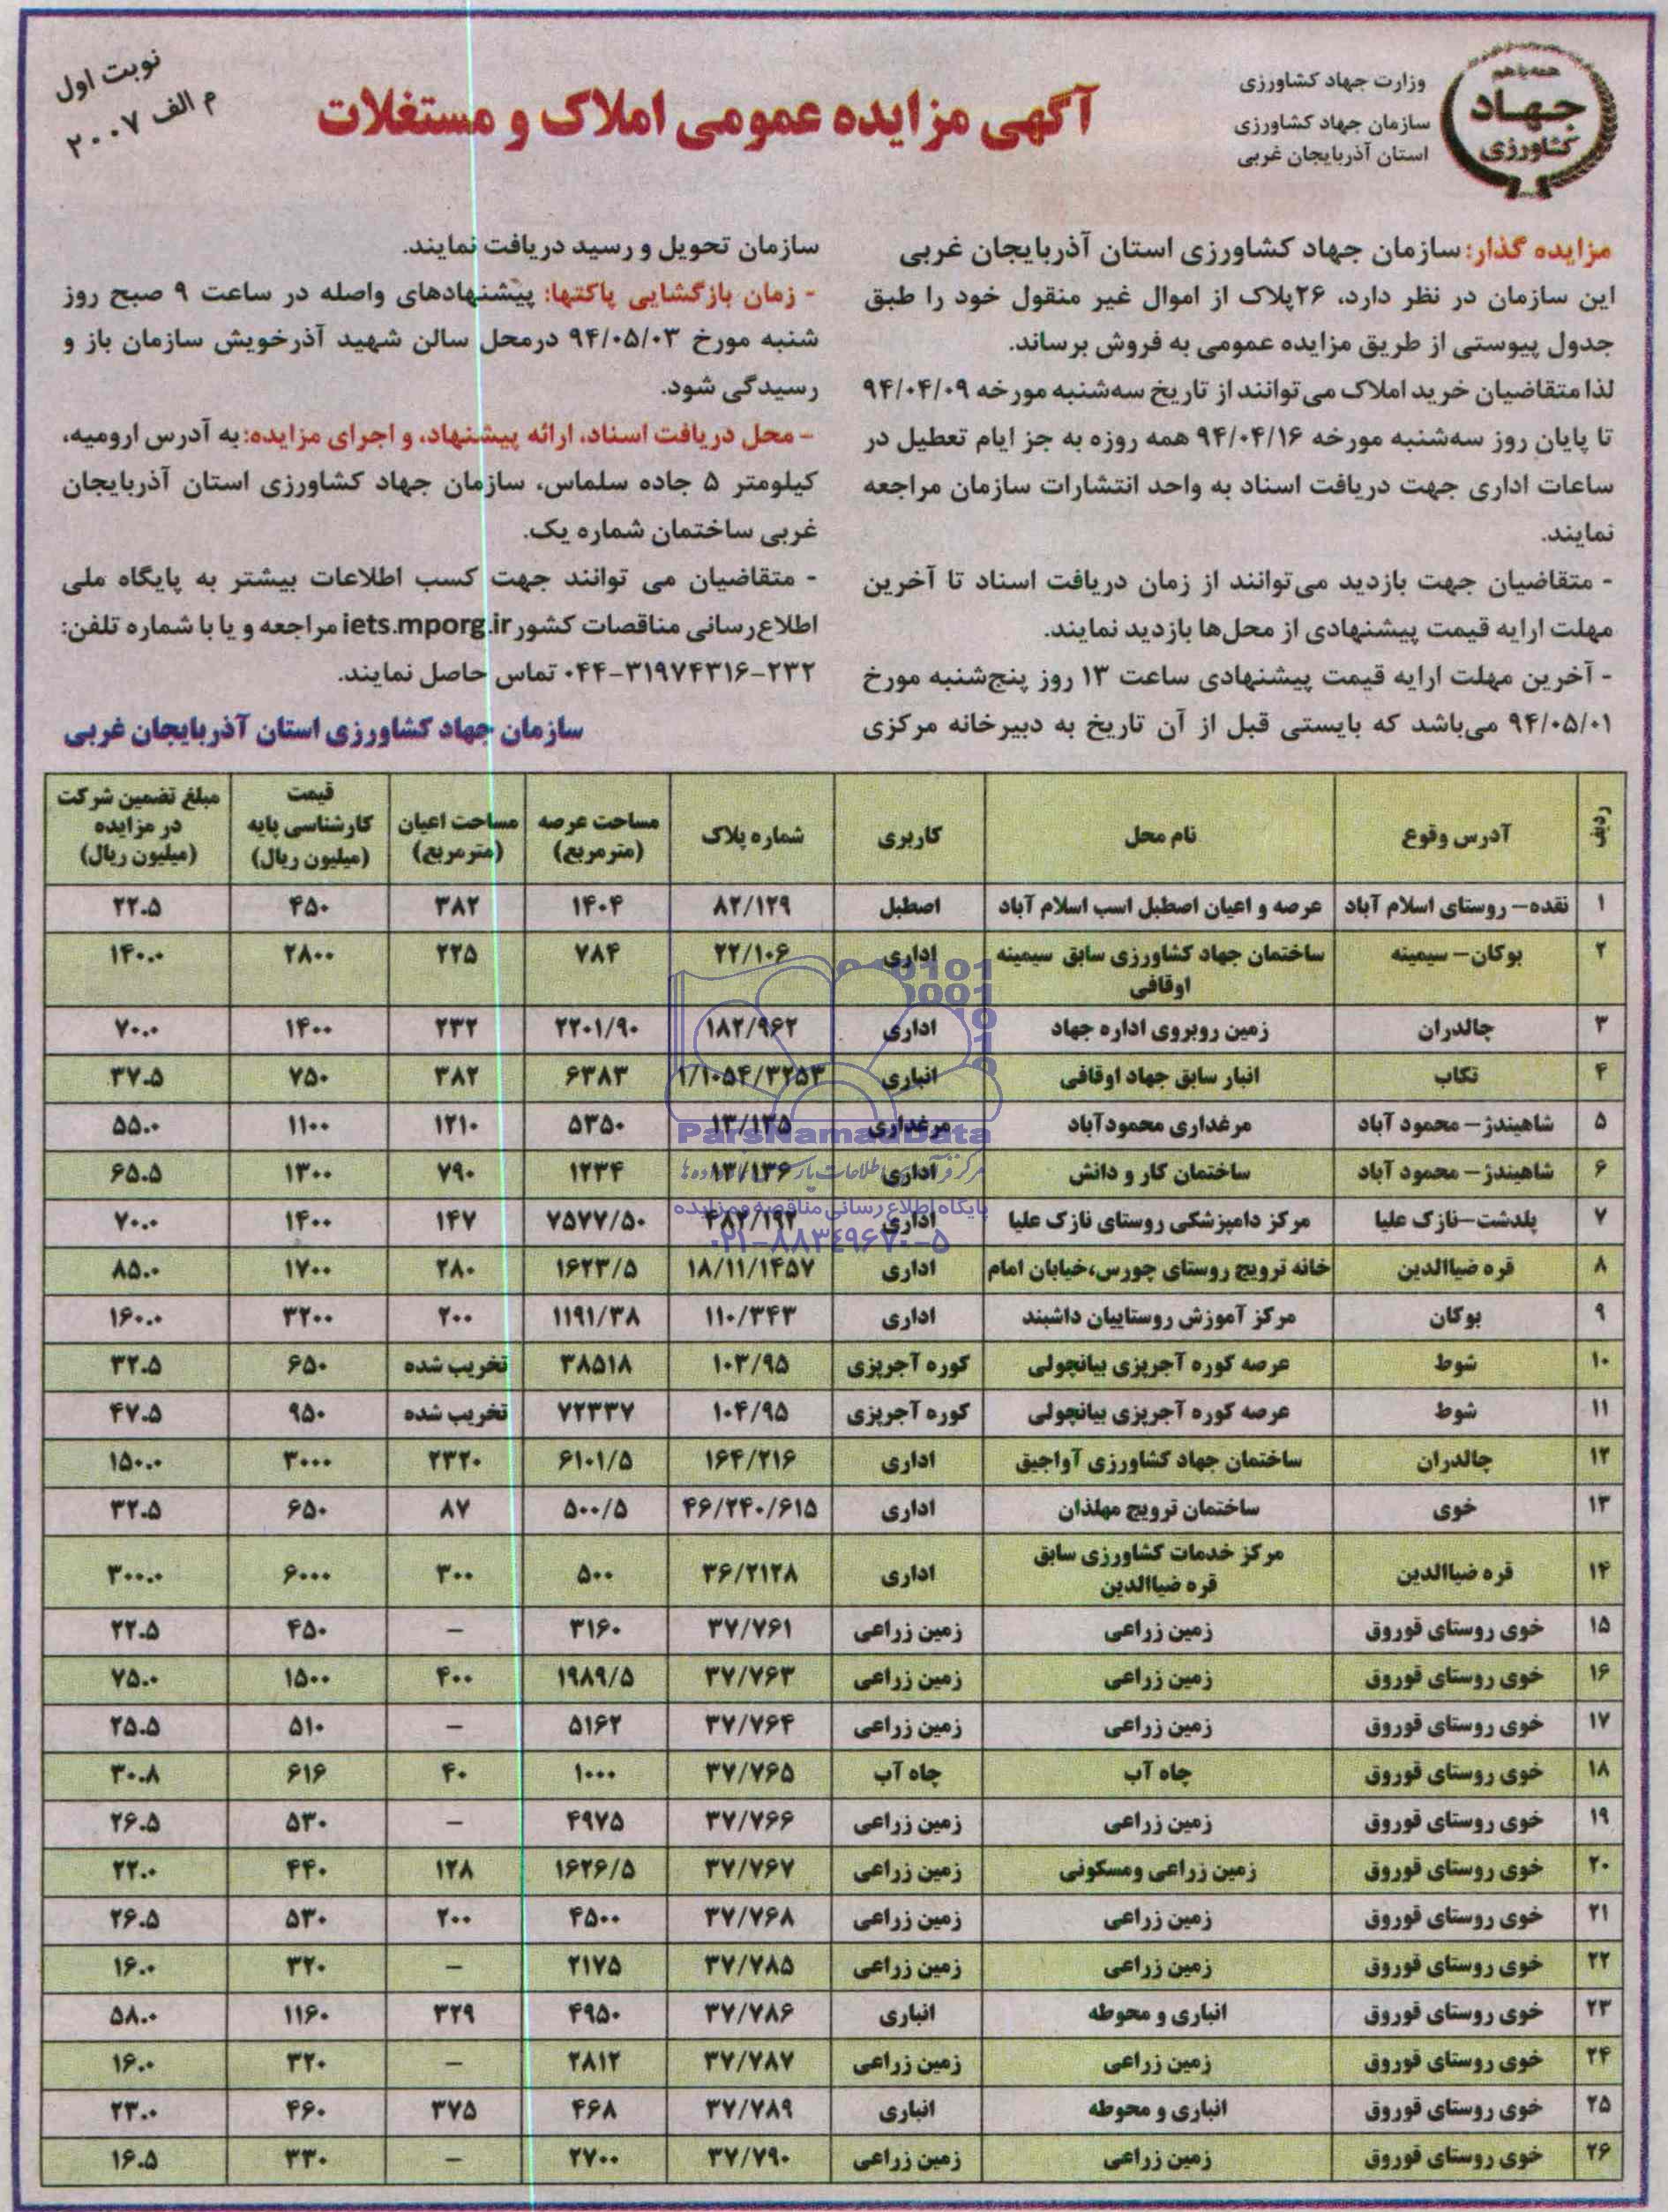 همه با هم
جهاد
کشاورزی
وزارت جهاد کشاورزی
سازمان جهاد کشاورزی
استان آذربایجان غربی
آگهی مزایده عمومی املاک و مستغلات
نوبت اول
م الف ۲۰۰۷
مزایده گذار: سازمان جهاد کشاورزی استان آذربایجان غربی
این سازمان در نظر دارد، ۲۶پلاک از اموال غیر منقول خود را طبق
جدول پیوستی از طریق مزایده عمومی به فروش برساند.
لذا متقاضیان خرید املاک می‌توانند از تاریخ سه‌شنبه مورخه ۹۴/۰۴/۰۹
تا پایان روز سه‌شنبه مورخه ۹۴/۰۴/۱۶ همه روزه به جز ایام تعطیل در
ساعات اداری جهت دریافت اسناد به واحد انتشارات سازمان مراجعه
نمایند.
- متقاضیان جهت بازدید می‌توانند از زمان دریافت اسناد تا آخرین
مهلت ارایه قیمت پیشنهادی از محل‌ها بازدید نمایند.
- آخرین مهلت ارایه قیمت پیشنهادی ساعت ۱۳ روز پنج‌شنبه مورخ
۹۴/۰۵/۰۱ می‌باشد که بایستی قبل از آن تاریخ به دبیرخانه مرکزی
سازمان تحویل و رسید دریافت نمایند.
- زمان بازگشایی پاکتها: پیشنهادهای واصله در ساعت ۹ صبح روز
شنبه مورخ ۹۴/۰۵/۰۳ درمحل سالن شهید آذرخویش سازمان باز و
رسیدگی شود.
- محل دریافت اسناد، ارائه پیشنهاد، و اجرای مزایده: به آدرس ارومیه،
کیلومتر ۵ جاده سلماس، سازمان جهاد کشاورزی استان آذربایجان
غربی ساختمان شماره یک.
- متقاضیان می توانند جهت کسب اطلاعات بیشتر به پایگاه ملی
اطلاع‌رسانی مناقصات کشور iets.mporg.ir مراجعه و یا با شماره تلفن:
۰۴۴-۳۱۹۷۴۳۱۶-۲۳۲ تماس حاصل نمایند.
سازمان جهاد کشاورزی استان آذربایجان غربی
ردیف | آدرس وقوع | نام محل | کاربری | شماره پلاک | مساحت عرصه (مترمربع) | مساحت اعیان (مترمربع) | قیمت کارشناسی پایه (میلیون ریال) | مبلغ تضمین شرکت در مزایده (میلیون ریال)
۱ | نقده– روستای اسلام آباد | عرصه و اعیان اصطبل اسب اسلام آباد | اصطبل | ۸۲/۱۲۹ | ۱۴۰۴ | ۳۸۲ | ۴۵۰ | ۲۲.۵
۲ | بوکان– سیمینه | ساختمان جهاد کشاورزی سابق سیمینه اوقافی | اداری | ۲۲/۱۰۶ | ۷۸۴ | ۲۲۵ | ۲۸۰۰ | ۱۴۰.۰
۳ | چالدران | زمین روبروی اداره جهاد | اداری | ۱۸۲/۹۶۲ | ۲۲۰۱/۹۰ | ۲۳۲ | ۱۴۰۰ | ۷۰.۰
۴ | تکاب | انبار سابق جهاد اوقافی | انباری | ۱/۱۰۵۴/۳۲۵۳ | ۶۳۸۳ | ۳۸۲ | ۷۵۰ | ۳۷.۵
۵ | شاهیندژ– محمود آباد | مرغداری محمودآباد | مرغداری | ۱۳/۱۳۵ | ۵۳۵۰ | ۱۲۱۰ | ۱۱۰۰ | ۵۵.۰
۶ | شاهیندژ– محمود آباد | ساختمان کار و دانش | اداری | ۱۳/۱۳۶ | ۱۲۳۴ | ۷۹۰ | ۱۳۰۰ | ۶۵.۵
۷ | پلدشت–نازک علیا | مرکز دامپزشکی روستای نازک علیا | اداری | ۴۸۲/۱۹۲ | ۷۵۷۷/۵۰ | ۱۴۷ | ۱۴۰۰ | ۷۰.۰
۸ | قره ضیاالدین | خانه ترویج روستای چورس،خیابان امام | اداری | ۱۸/۱۱/۱۴۵۷ | ۱۶۲۳/۵ | ۲۸۰ | ۱۷۰۰ | ۸۵.۰
۹ | بوکان | مرکز آموزش روستاییان داشبند | اداری | ۱۱۰/۳۴۳ | ۱۱۹۱/۳۸ | ۲۰۰ | ۳۲۰۰ | ۱۶۰.۰
۱۰ | شوط | عرصه کوره آجرپزی بیانچولی | کوره آجرپزی | ۱۰۳/۹۵ | ۳۸۵۱۸ | تخریب شده | ۶۵۰ | ۳۲.۵
۱۱ | شوط | عرصه کوره آجرپزی بیانچولی | کوره آجرپزی | ۱۰۴/۹۵ | ۷۲۳۳۷ | تخریب شده | ۹۵۰ | ۴۷.۵
۱۲ | چالدران | ساختمان جهاد کشاورزی آواجیق | اداری | ۱۶۴/۲۱۶ | ۶۱۰۱/۵ | ۲۳۲۰ | ۳۰۰۰ | ۱۵۰.۰
۱۳ | خوی | ساختمان ترویج مهلذان | اداری | ۴۶/۲۴۰/۶۱۵ | ۵۰۰/۵ | ۸۷ | ۶۵۰ | ۳۲.۵
۱۴ | قره ضیاالدین | مرکز خدمات کشاورزی سابق قره ضیاالدین | اداری | ۳۶/۲۱۲۸ | ۵۰۰ | ۳۰۰ | ۶۰۰۰ | ۳۰۰.۰
۱۵ | خوی روستای قوروق | زمین زراعی | زمین زراعی | ۳۷/۷۶۱ | ۳۱۶۰ | – | ۴۵۰ | ۲۲.۵
۱۶ | خوی روستای قوروق | زمین زراعی | زمین زراعی | ۳۷/۷۶۳ | ۱۹۸۹/۵ | ۴۰۰ | ۱۵۰۰ | ۷۵.۰
۱۷ | خوی روستای قوروق | زمین زراعی | زمین زراعی | ۳۷/۷۶۴ | ۵۱۶۲ | – | ۵۱۰ | ۲۵.۵
۱۸ | خوی روستای قوروق | چاه آب | چاه آب | ۳۷/۷۶۵ | ۱۰۰۰ | ۴۰ | ۶۱۶ | ۳۰.۸
۱۹ | خوی روستای قوروق | زمین زراعی | زمین زراعی | ۳۷/۷۶۶ | ۴۹۷۵ | – | ۵۳۰ | ۲۶.۵
۲۰ | خوی روستای قوروق | زمین زراعی ومسکونی | زمین زراعی | ۳۷/۷۶۷ | ۱۶۲۶/۵ | ۱۲۸ | ۴۴۰ | ۲۲.۰
۲۱ | خوی روستای قوروق | زمین زراعی | زمین زراعی | ۳۷/۷۶۸ | ۴۵۰۰ | ۲۰۰ | ۵۳۰ | ۲۶.۵
۲۲ | خوی روستای قوروق | زمین زراعی | زمین زراعی | ۳۷/۷۸۵ | ۲۱۷۵ | – | ۳۲۰ | ۱۶.۰
۲۳ | خوی روستای قوروق | انباری و محوطه | انباری | ۳۷/۷۸۶ | ۴۹۵۰ | ۳۲۹ | ۱۱۶۰ | ۵۸.۰
۲۴ | خوی روستای قوروق | زمین زراعی | زمین زراعی | ۳۷/۷۸۷ | ۲۸۱۲ | – | ۳۲۰ | ۱۶.۰
۲۵ | خوی روستای قوروق | انباری و محوطه | انباری | ۳۷/۷۸۹ | ۴۶۸ | ۳۷۵ | ۴۶۰ | ۲۳.۰
۲۶ | خوی روستای قوروق | زمین زراعی | زمین زراعی | ۳۷/۷۹۰ | ۲۷۰۰ | – | ۳۳۰ | ۱۶.۵
ParsNamadData
پایگاه اطلاع رسانی مناقصه و مزایده
۰۲۱-۸۸۳۴۹۶۷۰-۵